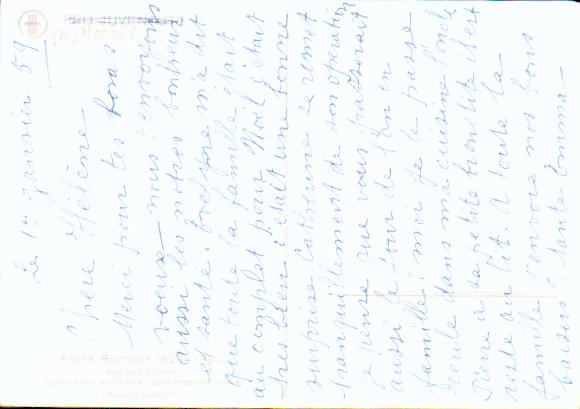 PRO JUVENTUTE
Le 1er janvier 59
Chère Hélène
Merci pour tes bons
voeux – nous t'envoyons
aussi les nôtres bonheur
et santé.
que toute la famille était
au complet pour Noël, c'était
très bien c'était une bonne
surprise. Catherine se remet
tranquillement de son opération
je pense que vous passerait
aussi le jour de l'an en
famille, moi je le passe
seule dans ma cuisine l'oncle
Pierre a sa petite bronchite il est
resté au lit. A toute la
famille j'envoie nos bons
baisers. tante Emma
Frank Buchser 1828–1890
Weg nach Civitella
Sur le chemin de Civitella
(Museum Solothurn)